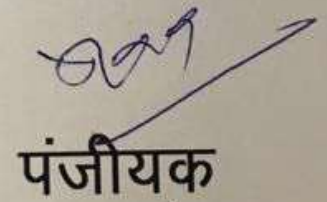 पंजीयक